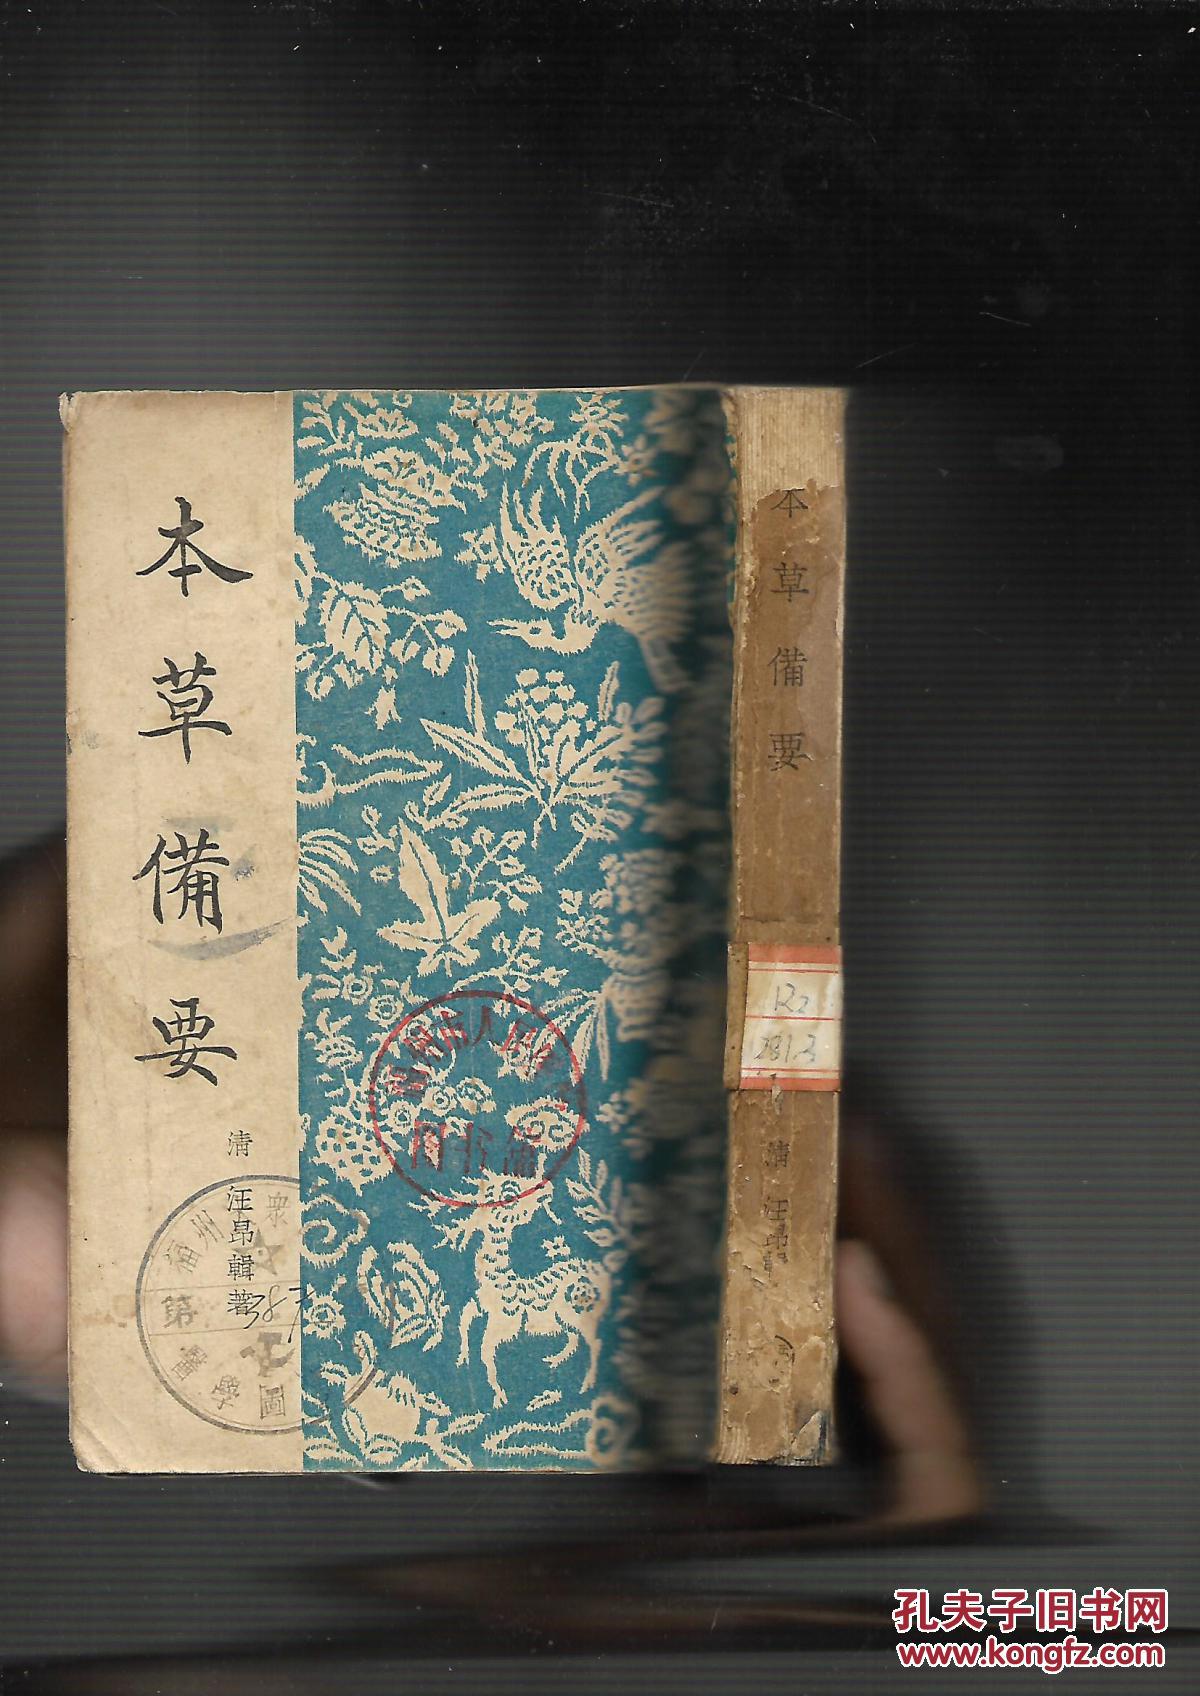 本草備要
清 汪昂輯著
福州
衆
第
圖
州市人民
图书馆
本草備要
R2
281.3
清 汪昂
孔夫子旧书网
www.kongfz.com